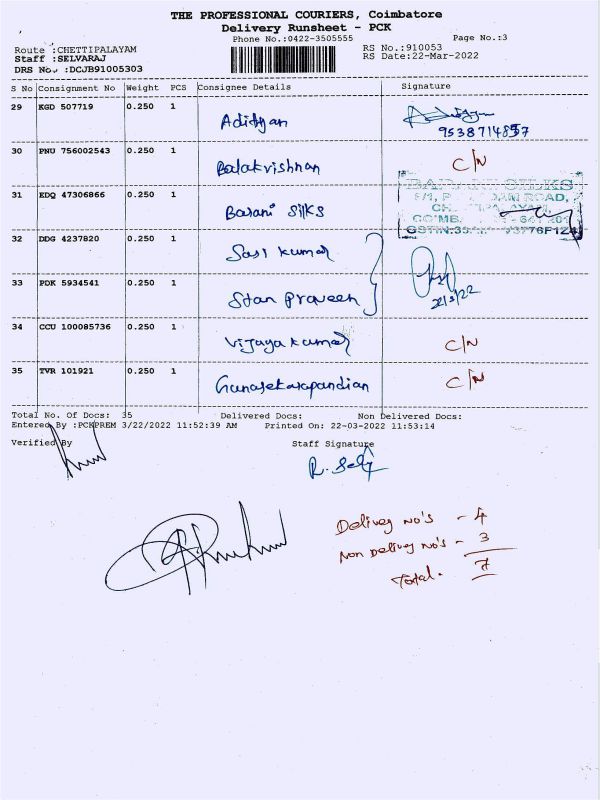 THE PROFESSIONAL COURIERS, Coimbatore
Delivery Runsheet - PCK
Phone No.:0422-3505555 Page No.:3
Route :CHETTIPALAYAM RS No.:910053
Staff :SELVARAJ RS Date:22-Mar-2022
DRS No. :DCJB91005303
S No Consignment No Weight PCS Consignee Details Signature
29 KGD 507719 0.250 1 Adithyan
9538714857
30 PNU 756002543 0.250 1 Balakrishnan C/N
BARANI SILKS
31 EDQ 47306866 0.250 1 Barani Silks
32 DDG 4237820 0.250 1 Sasi kumar
33 PDK 5934541 0.250 1 Stan Praveen
34 CCU 100085736 0.250 1 Vijaya kumar C/N
35 TVR 101921 0.250 1 Gunasekarapandian C/N
Total No. Of Docs: 35 Delivered Docs: Non Delivered Docs:
Entered By :PCKPREM 3/22/2022 11:52:39 AM Printed On: 22-03-2022 11:53:14
Verified By Staff Signature
Delivey no's - 4
Non Delivey no's - 3
Total. 7